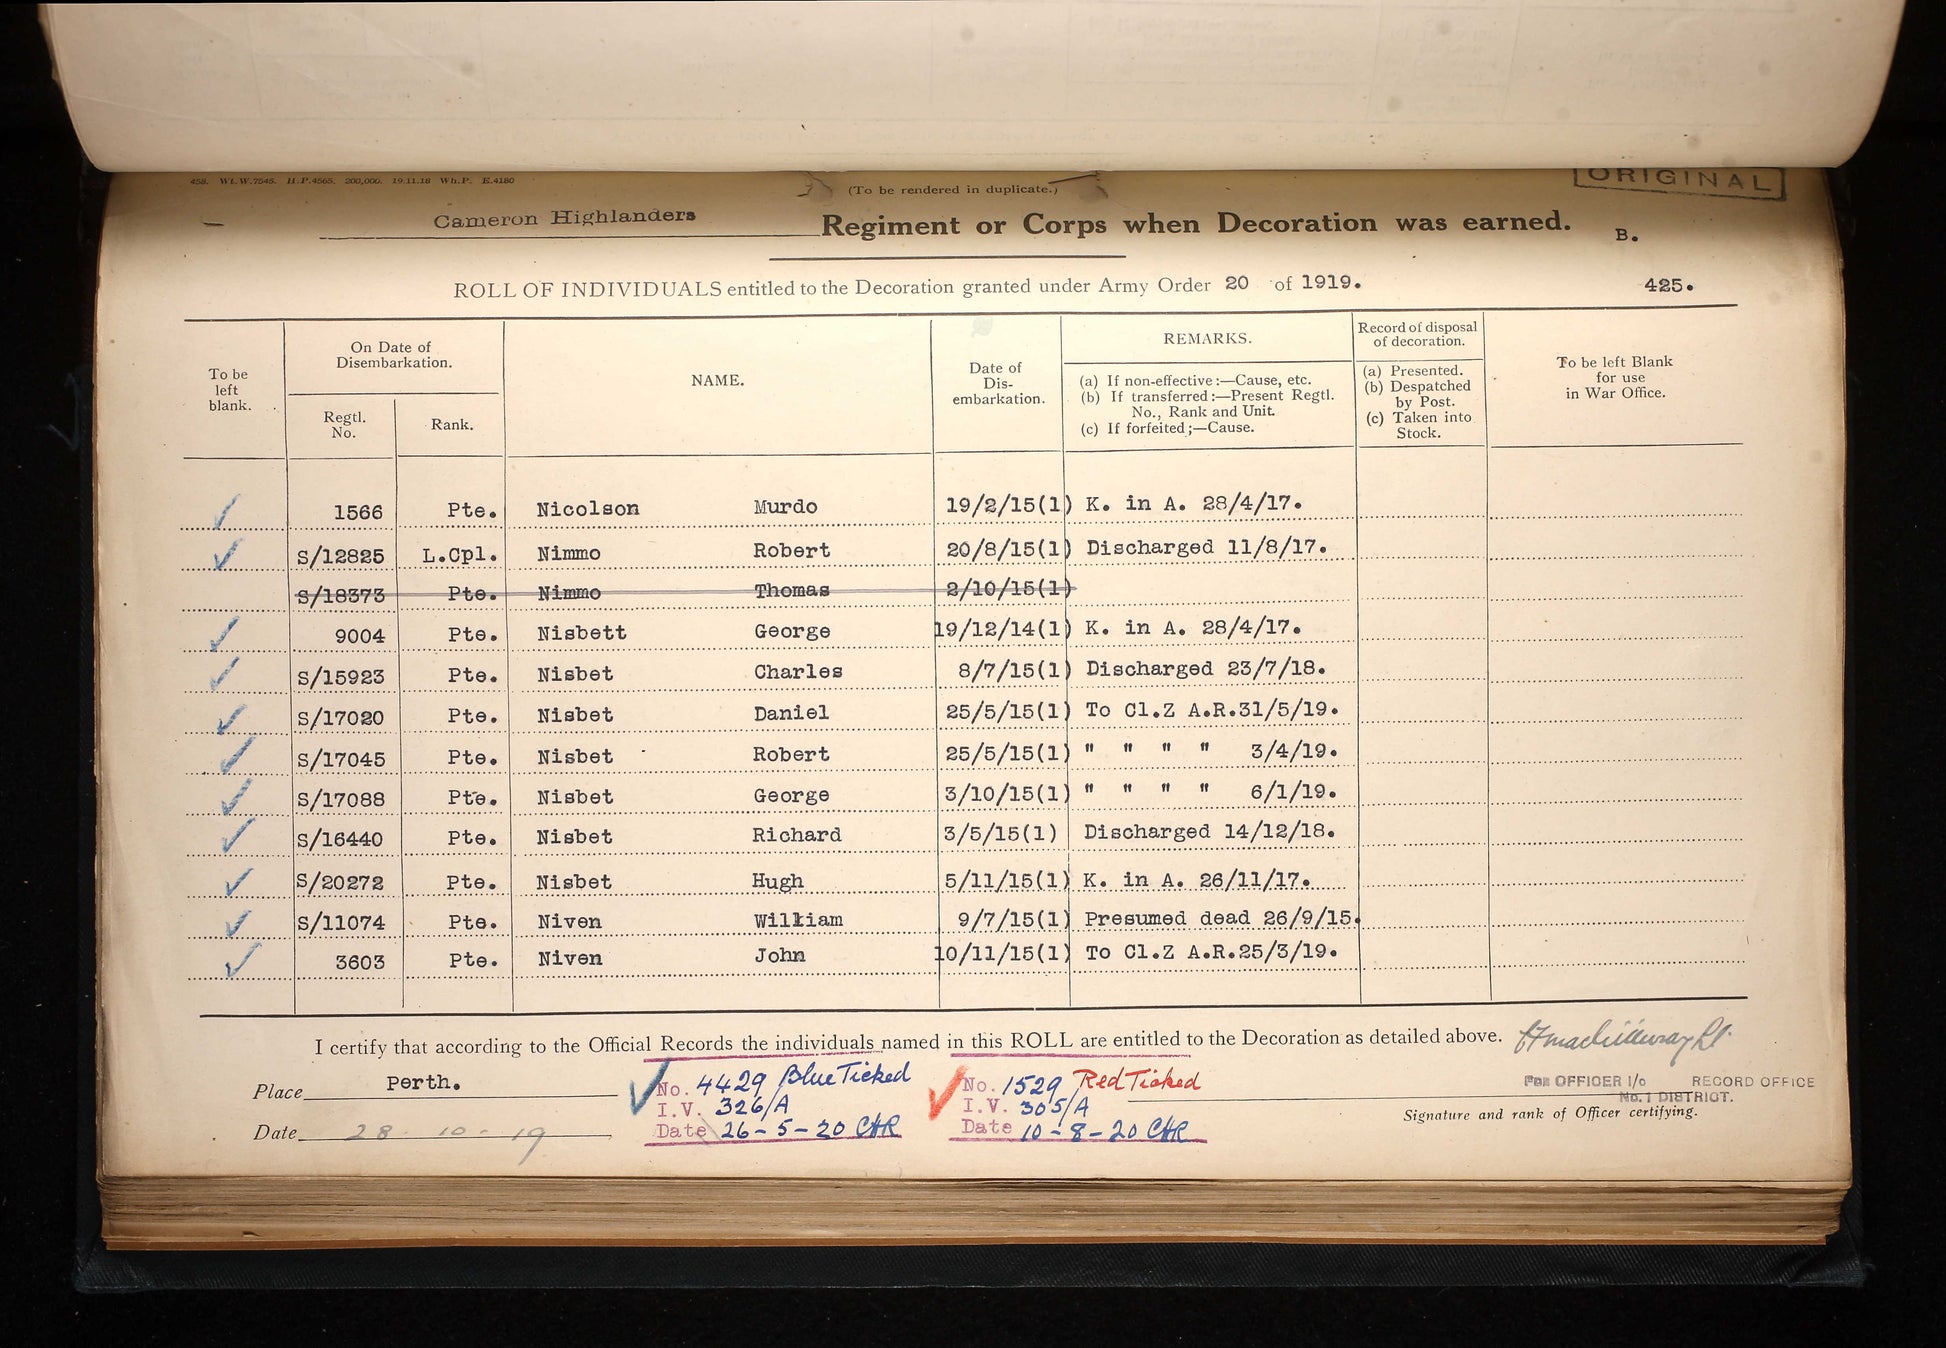 458. Wt.W.7545. H.P.4565. 200,000. 19.11.18 Wh.P. E.4180
(To be rendered in duplicate.)
ORIGINAL
Cameron Highlanders Regiment or Corps when Decoration was earned. B.
ROLL OF INDIVIDUALS entitled to the Decoration granted under Army Order 20 of 1919. 425.
To be left blank.
On Date of Disembarkation.
Regtl. No.
Rank.
NAME.
Date of Dis-embarkation.
REMARKS.
(a) If non-effective:—Cause, etc.
(b) If transferred:—Present Regtl. No., Rank and Unit.
(c) If forfeited;—Cause.
Record of disposal of decoration.
(a) Presented.
(b) Despatched by Post.
(c) Taken into Stock.
To be left Blank for use in War Office.
1566 Pte. Nicolson Murdo 19/2/15(1) K. in A. 28/4/17.
S/12825 L.Cpl. Nimmo Robert 20/8/15(1) Discharged 11/8/17.
S/18373 Pte. Nimmo Thomas 2/10/15(1)
9004 Pte. Nisbett George 19/12/14(1) K. in A. 28/4/17.
S/15923 Pte. Nisbet Charles 8/7/15(1) Discharged 23/7/18.
S/17020 Pte. Nisbet Daniel 25/5/15(1) To Cl.Z A.R.31/5/19.
S/17045 Pte. Nisbet Robert 25/5/15(1) " " " " 3/4/19.
S/17088 Pte. Nisbet George 3/10/15(1) " " " " 6/1/19.
S/16440 Pte. Nisbet Richard 3/5/15(1) Discharged 14/12/18.
S/20272 Pte. Nisbet Hugh 5/11/15(1) K. in A. 26/11/17.
S/11074 Pte. Niven William 9/7/15(1) Presumed dead 26/9/15.
3603 Pte. Niven John 10/11/15(1) To Cl.Z A.R.25/3/19.
I certify that according to the Official Records the individuals named in this ROLL are entitled to the Decoration as detailed above.
Place Perth.
Date 28-10-19
No. 4429 Blue Ticked
I.V. 326/A
Date 26-5-20 CHR
No. 1529 Red Ticked
I.V. 305/A
Date 10-8-20 CHR
FOR OFFICER I/c RECORD OFFICE
No. 1 DISTRICT.
Signature and rank of Officer certifying.